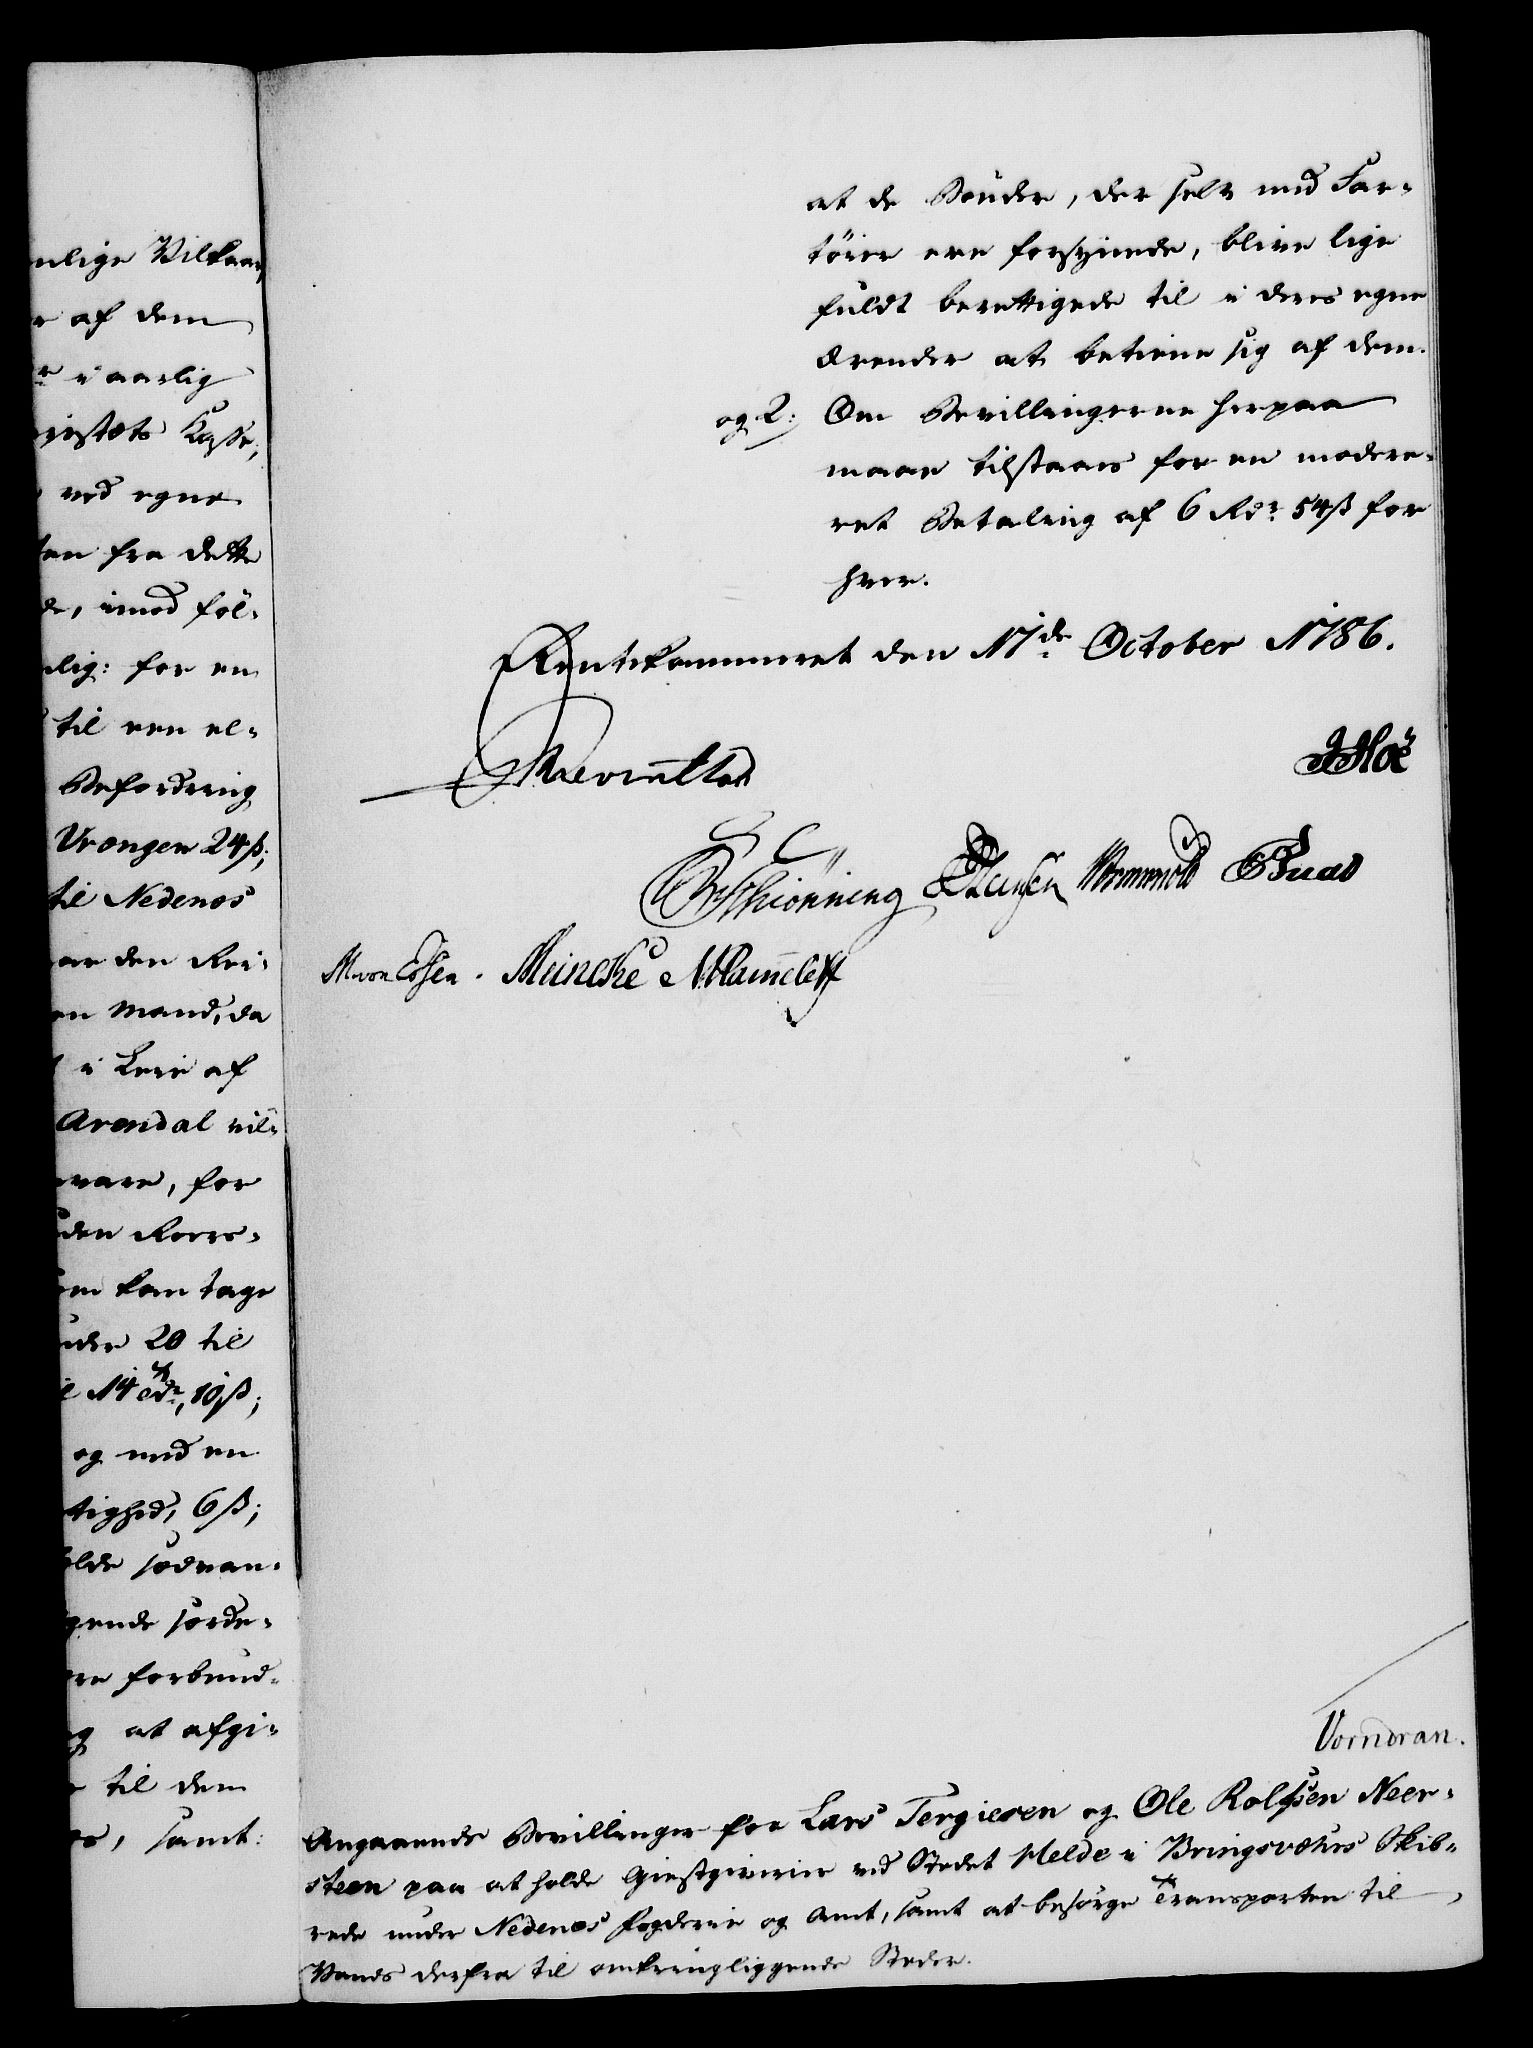 nlige Vilkaar,
r af dem
r i aarlig
ajestæts Kasse,
ved egne
ten fra dette
de, imod föl-
lig: for en
til een el-
Befordring
Vrængen 24 ß;
til Nedenæs
den Rei-
en Mand, da
i Leie af
Arendal vil-
vare, for
den Roers-
om kan tage
under 20 til
14 10 ß;
og med en
tighed, 6 ß;
olde sædvan-
gende
re forbund-
g at afgi-
til dem
samt:
at de Bönder, der selv med Far-
töier ere forsynede, blive lige
fuldt berettigede til i deres egne
Ærender at betiene sig af dem.
og 2: Om Bevillingerne herpaa
maae tilstaaes for en modere-
ret Betaling af 6 Rdr 54 ß for
hver.
Rentekammeret den 17de October 1786.
Reventlow
JHoë
Schiönning Hansen Wormskiold
M von Essen. Meincke NRamcleff
Vorndran.
Angaaende Bevillinger for Lars Tergiesen og Ole Rolfsen Neer-
steen paa at holde Giestgiverie ved Stedet Helde i Bringsværs Skib-
rede under Nedenæs Fogderie og Amt, samt at besörge Transporten til
Vands derfra til omkringliggende Steder.